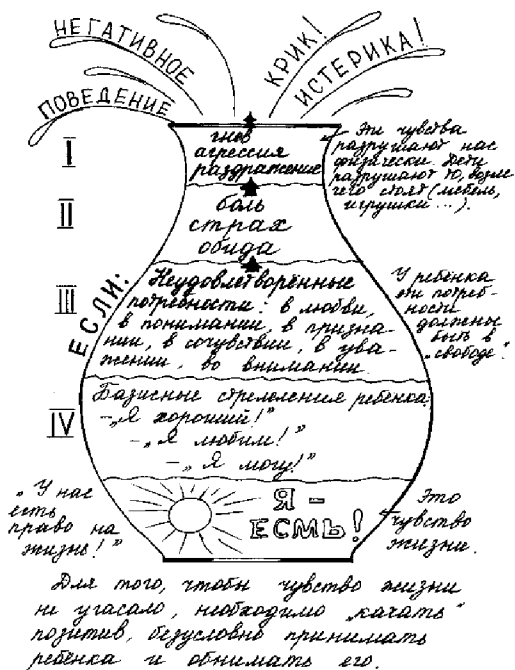 НЕГАТИВНОЕ
ПОВЕДЕНИЕ
КРИК!
ИСТЕРИКА!
I
гнев
агрессия
раздражение
Эти чувства
разрушают нас
физически. Дети
разрушают то, возле
чего стоят (мебель,
игрушки...).
II
боль
страх
обида
ЕСЛИ:
III
Неудовлетворённые
потребности: в любви,
в понимании, в призна-
нии, в сочувствии, в ува-
жении, во внимании.
У ребёнка
эти потреб-
ности
должны
быть в
„свободе".
IV
Базисные стремления ребёнка:
-„Я хороший!"
-„Я любим!"
-„Я могу!"
„У нас
есть
право на
жизнь!"
Я -
ЕСМЬ!
Это
чувство
жизни.
Для того, чтобы чувство жизни
не угасало, необходимо „качать"
позитив, безусловно принимать
ребёнка и обнимать его.